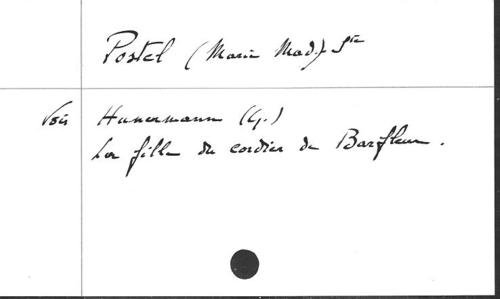 Postel (Marie Mad.) Ste
Voir Hunermann (G.)
La fille du cordier de Barfleur.